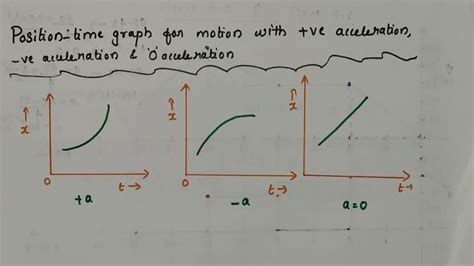 Position-time graph for motion with +ve acceleration,
-ve acceleration & 'O' acceleration
x
O
t
+a
x
O
t
-a
x
O
t
a=0